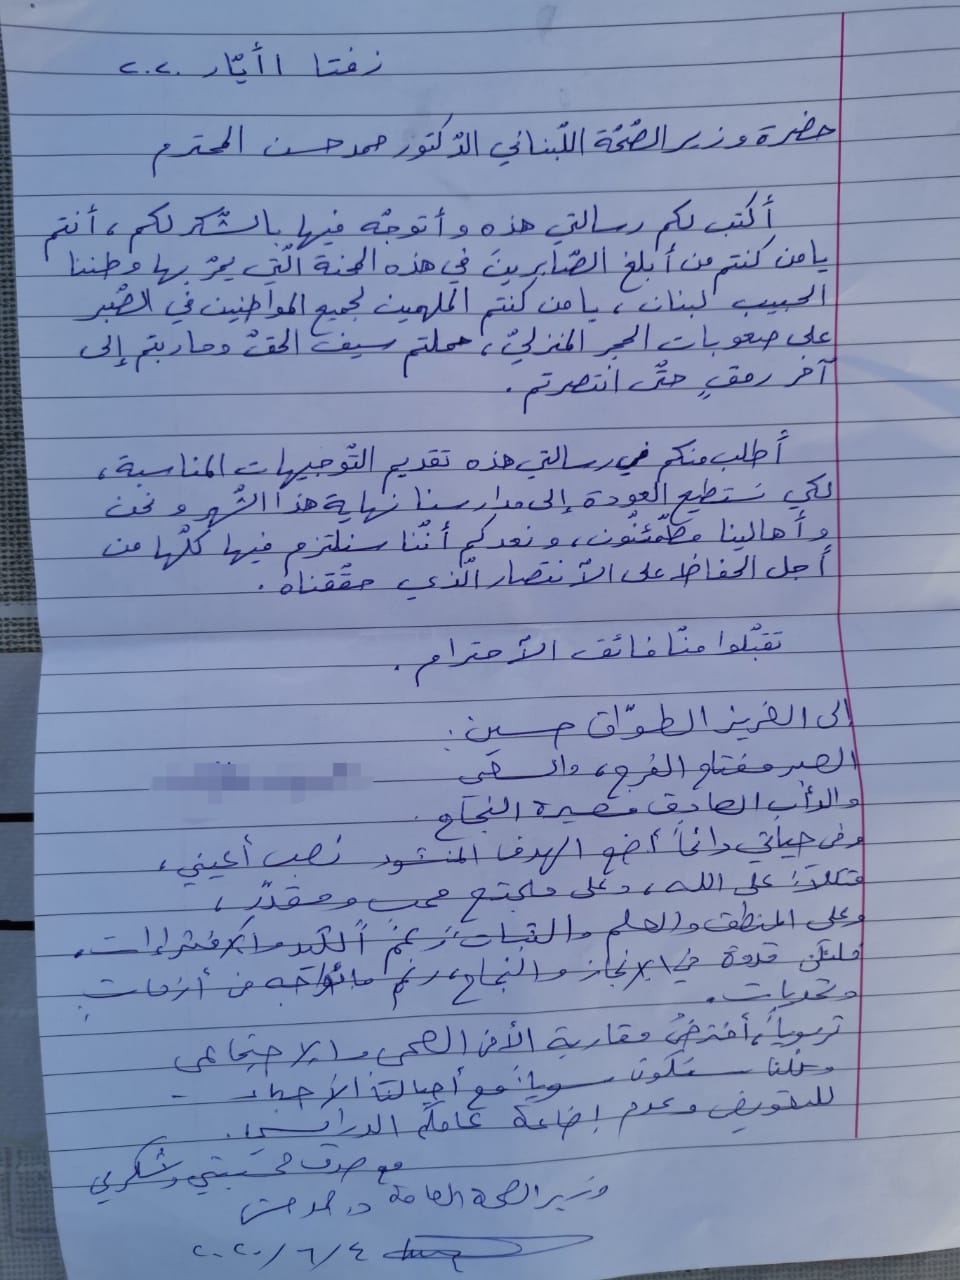 زفتا ١ أيّار ٢٠٢٠
حضرة وزير الصّحّة اللّبناني الدّكتور حمد حسن المحترم
أكتب لكم رسالتي هذه و أتوجّه فيها بالشّكر لكم، أنتم
يا من كنتم من أبلغ الصّابرينَ في هذه المحنة الّتي يمرّ بها وطننا
الحبيب لبنان، يا من كنتم الملهمين لجميع المواطنين في الصّبر
على صعوبات الحجر المنزليّ، حملتم سيف الحقّ وحاربتم إلى
آخر رمقٍ حتّى انتصرتم.
أطلب منكم في رسالتي هذه تقديم التّوجيهات المناسبة،
لكي نستطيع العودة إلى مدارسنا نهاية هذا الشّهر و نحن
و أهالينا مطمئنّون، و نعدكم أنّنا سنلتزم فيها كلّها من
أجل الحفاظ على الانتصار الّذي حقّقناه.
تقبّلوا منّا فائق الاحترام.
إلى العزيز الطوّاق حسين:
الصبر مفتاح الفرج، والسعي
والدأب الصادق مصيره النجاح.
وفي حياتي دائماً أضع الهدف المنشود نصب أعيني،
متكلاً على الله، وعلى مجتمع محب ومقدّر،
وعلى المنطق والعلم والثبات، رغم الكيد والافتراءات.
فلنكن قدوة في الإنجاز والنجاح، رغم ما نواجه من أزمات
وتحديات.
تربوياً، أفترضُ مقاربة الأمن الصحي والاجتماعي
وكلنا سنكون سوياً مع أجيالنا الأحباء -
للتعويض وعدم إضاعة عامكم الدراسي.
مع صدق محبتي وشكري
وزير الصحة العامة د. حمد حسن
٢٠٢٠/٦/٤